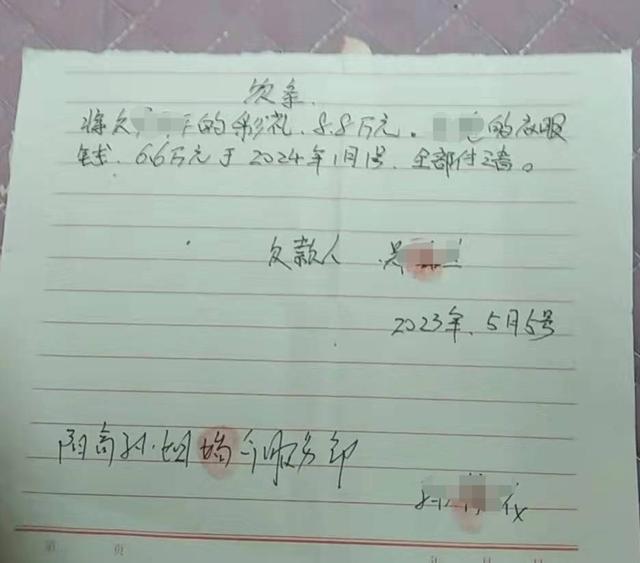 欠条.
将欠的彩礼.8.8万元.的衣服
钱.6.6万元于2024年1月1号.全部付清。
欠款人
2023年.5月5号
阳高孙.姐婚介服务部
第 页
年 月 日